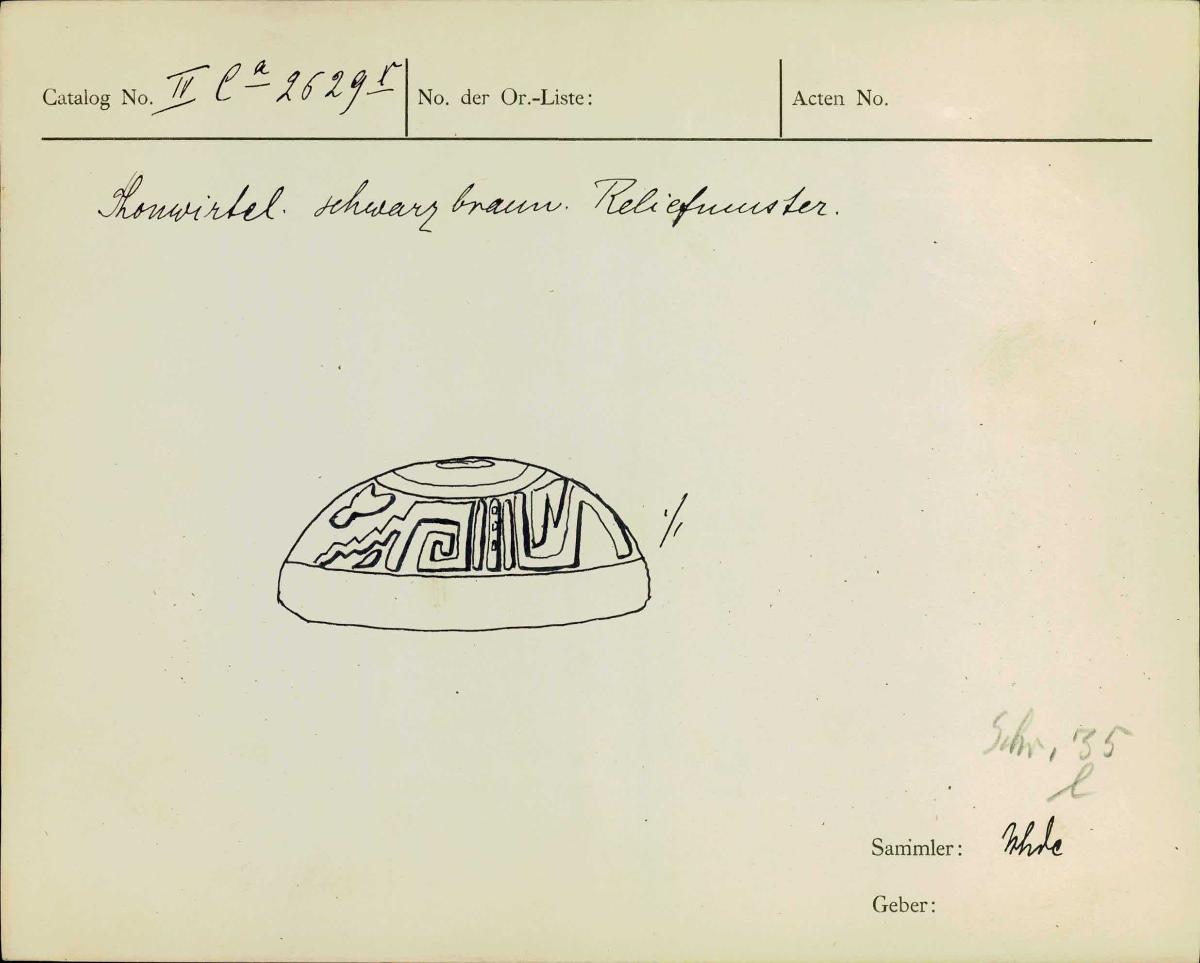 Catalog No. IV Ca 2629 r No. der Or.-Liste: Acten No.
Thonwirtel. schwarzbraun. Reliefmuster.
1/1
Schr. 35
l
Sammler: Uhde
Geber: